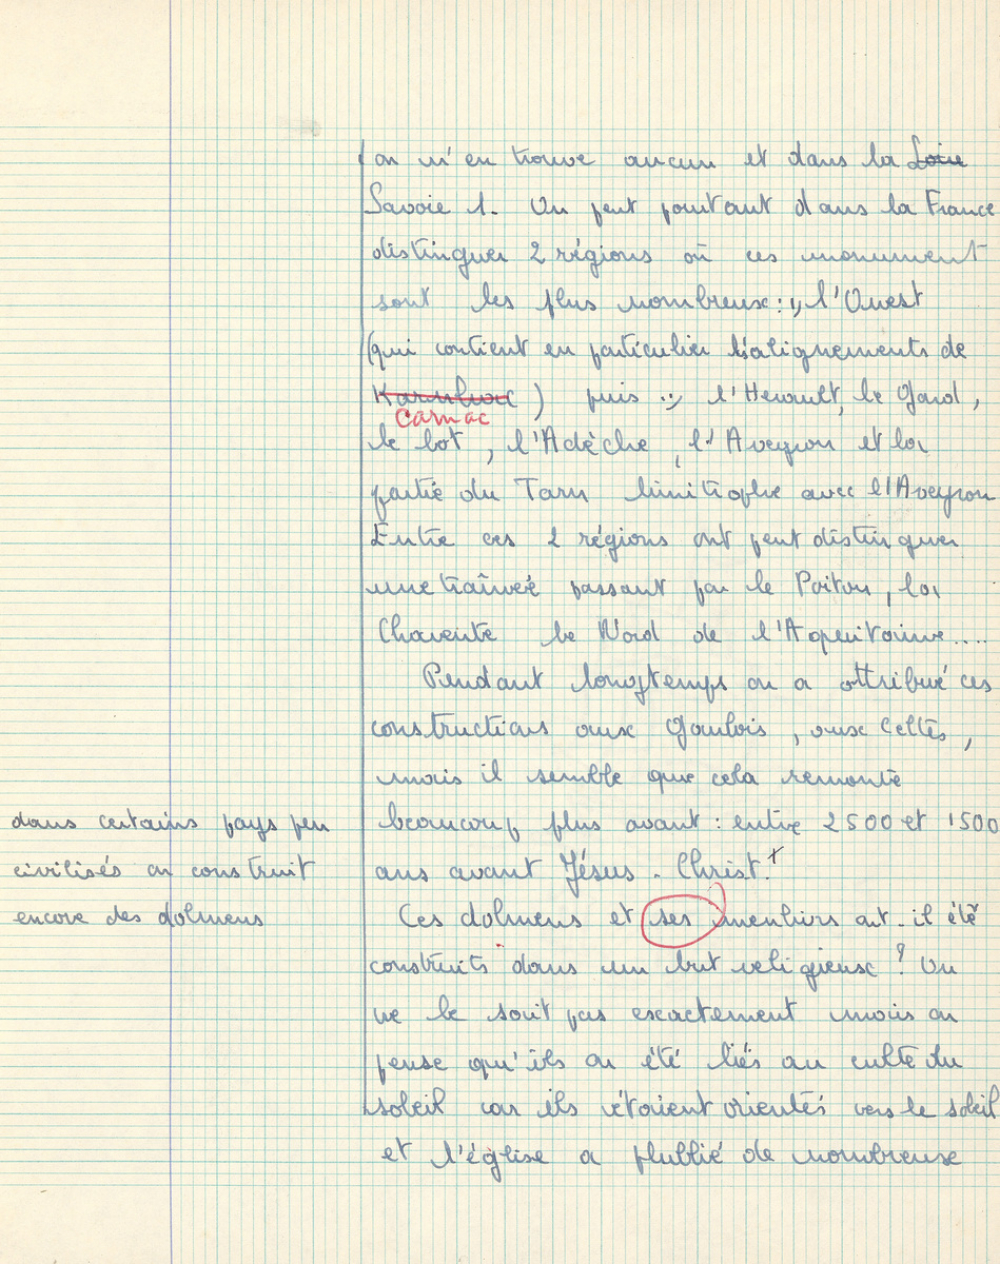 on n'en trouve aucun et dans la Loire
Savoie 1. On peut pourtant dans la France
distinguer 2 régions où ces monument
sont les plus nombreux : l'Ouest
(qui contient en particulier l'salignements de
) puis l'Herault, le Gard,
Carnac
le lot, l'Adèche, l'Aveyron et la
partie du Tarn limitrophe avec l'Aveyron
Entre ces 2 régions ont peut distinguer
une traîneé passant par le Poitou, la
Charente le Nord de l'Aquitaine....
Pendant longtemps on a attribué ces
constructions aux Gaulois, aux Celtes,
mais il semble que cela remonte
beaucoup plus avant : entre 2500 et 1500
ans avant Jésus-Christ.+
dans certains pays peu
civilisés on construit
encore des dolmens
Ces dolmens et ses menhirs ont-il été
construits dans un but religieuse ? On
ne le sait pas exactement mais on
pense qu'ils on été liés au culte du
soleil car ils étaient orientés vers le soleil
et l'église a plublié de nombreuse